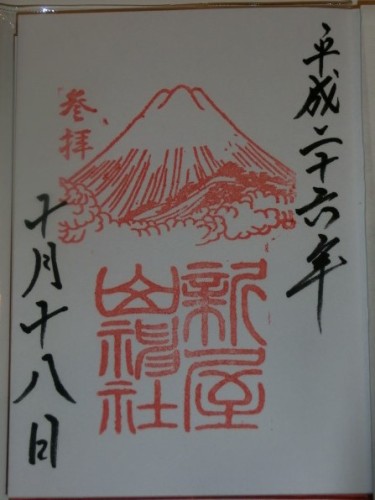 平成二十六年
参拝
新屋
山神社
十月十八日